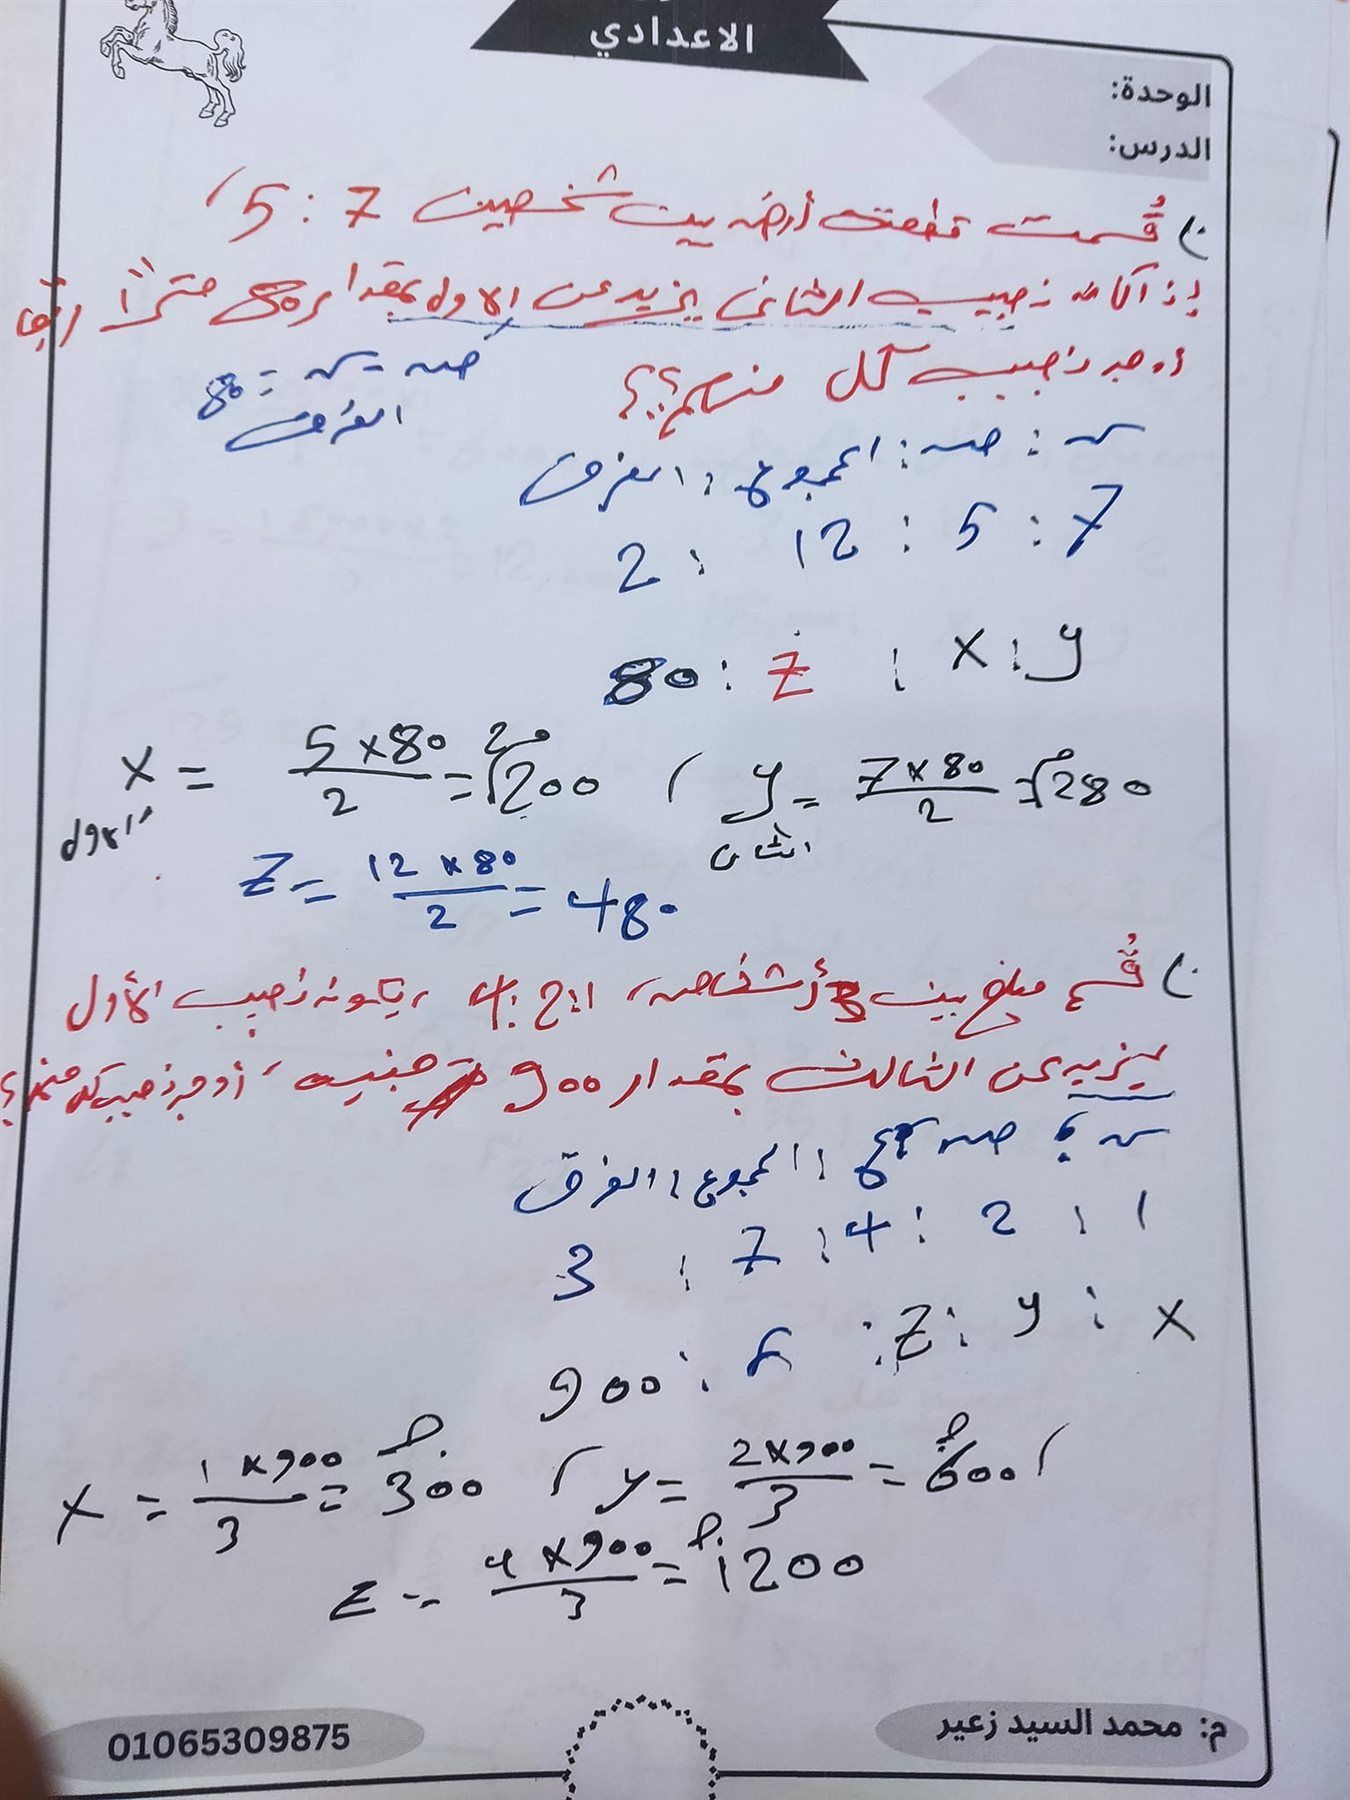 الاعدادي
الوحدة:
الدرس:
قُسمت قطعة أرض بين شخصين 7 : 5 ،
إذا كان نصيب الثاني يزيد عن الاول بمقدار 80 متراً
أوجد نصيب كل منهم؟؟
ص - س = 80
الفرق
س : ص : المجموع : الفرق
7 : 5 : 12 : 2
y : x : z : 80
x = 5 x 80 / 2 = 200 ، y = 7 x 80 / 2 = 280
الاول
الثاني
z = 12 x 80 / 2 = 480
قُسم مبلغ بين 3 أشخاص، 4 : 2 : 1 ، نصيب الأول
يزيد عن الثالث بمقدار 900 جنيه، أوجد نصيب كل منهم؟
س : ص : ع : المجموع : الفرق
1 : 2 : 4 : 7 : 3
x : y : z : 900
x = 1 x 900 / 3 = 300 ، y = 2 x 900 / 3 = 600 ،
z = 4 x 900 / 3 = 1200
م: محمد السيد زعير
01065309875